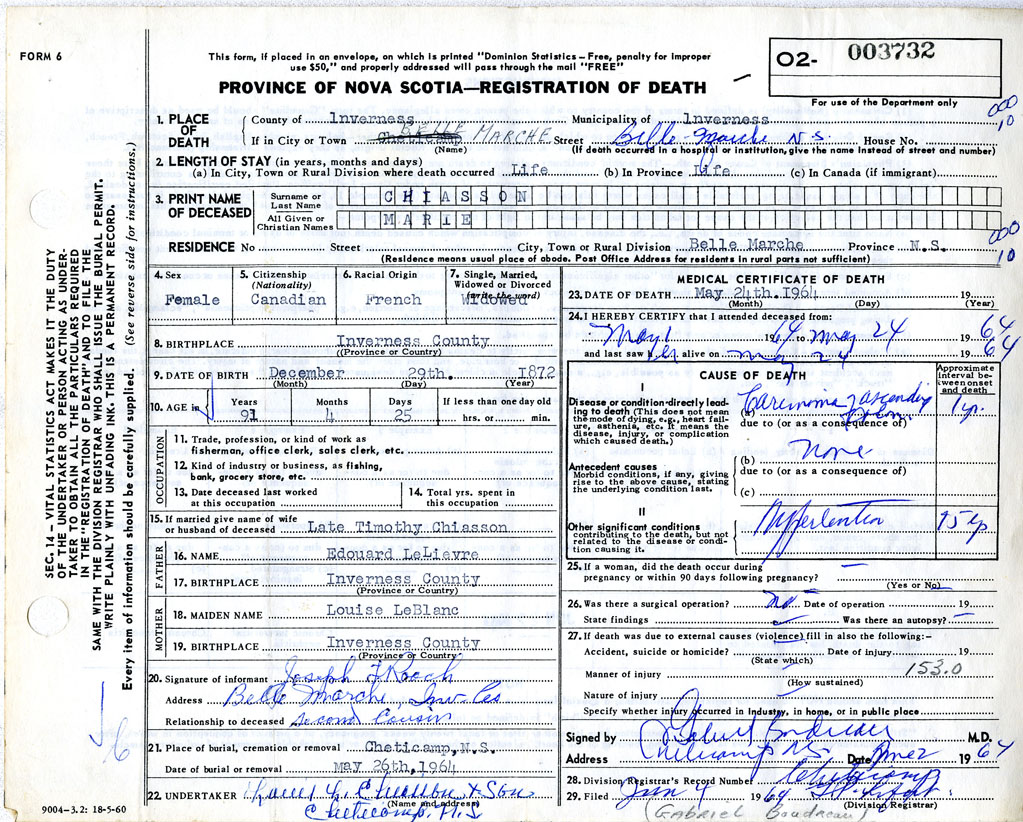 FORM 6
This form, if placed in an envelope, on which is printed "Dominion Statistics—Free, penalty for improper
use $50," and properly addressed will pass through the mail "FREE"
PROVINCE OF NOVA SCOTIA—REGISTRATION OF DEATH
O2- 003732
For use of the Department only
000
10
1. PLACE OF DEATH
County of Inverness Municipality of Inverness
If in City or Town Cheticamp BELLE MARCHE Street Belle Marche N.S. House No.
(Name) (If death occurred in a hospital or institution, give the name instead of street and number)
2. LENGTH OF STAY (in years, months and days)
(a) In City, Town or Rural Division where death occurred Life (b) In Province Life (c) In Canada (if immigrant)
3. PRINT NAME OF DECEASED
Surname or Last Name CHIASSON
All Given or Christian Names MARIE
000
10
RESIDENCE No Street City, Town or Rural Division Belle Marche Province N.S.
(Residence means usual place of abode. Post Office Address for residents in rural parts not sufficient)
4. Sex
Female
5. Citizenship
(Nationality)
Canadian
6. Racial Origin
French
7. Single, Married,
Widowed or Divorced
(write the word)
Widowed
8. BIRTHPLACE Inverness County
(Province or Country)
9. DATE OF BIRTH December 29th. 1872
(Month) (Day) (Year)
10. AGE in
Years Months Days If less than one day old
91 4 25 hrs. or min.
OCCUPATION
11. Trade, profession, or kind of work as
fisherman, office clerk, sales clerk, etc.
12. Kind of industry or business, as fishing,
bank, grocery store, etc.
13. Date deceased last worked
at this occupation
14. Total yrs. spent in
this occupation
15. If married give name of wife
or husband of deceased Late Timothy Chiasson
FATHER
16. NAME Edouard LeLievre
17. BIRTHPLACE Inverness County
(Province or Country)
MOTHER
18. MAIDEN NAME Louise LeBlanc
19. BIRTHPLACE Inverness County
(Province or Country)
20. Signature of informant Joseph F Roach
Address Belle Marche, Inv. Co
Relationship to deceased Second Cousin
21. Place of burial, cremation or removal Cheticamp, N.S.
Date of burial or removal May 26th, 1964
22. UNDERTAKER Chiasson & Son
(Name and address)
Cheticamp, N.S
MEDICAL CERTIFICATE OF DEATH
23. DATE OF DEATH May 24th. 1964 19
(Month) (Day) (Year)
24. I HEREBY CERTIFY that I attended deceased from:
May 1 1964 to May 24 1964
and last saw her alive on May 24 1964
CAUSE OF DEATH
Approximate
interval be-
tween onset
and death
I
Disease or condition directly lead-
ing to death (This does not mean
the mode of dying, e.g., heart fail-
ure, asthenia, etc. It means the
disease, injury, or complication
which caused death.)
(a) Carcinoma ascending colon 1 yr.
due to (or as a consequence of)
None
Antecedent causes
Morbid conditions, if any, giving
rise to the above cause, stating
the underlying condition last.
(b)
due to (or as a consequence of)
(c)
II
Other significant conditions
contributing to the death, but not
related to the disease or condi-
tion causing it.
Hypertention
25. If a woman, did the death occur during
pregnancy or within 90 days following pregnancy?
(Yes or No)
26. Was there a surgical operation? no Date of operation 19
State findings Was there an autopsy?
27. If death was due to external causes (violence) fill in also the following:—
Accident, suicide or homicide? Date of injury 19
(State which)
Manner of injury 153.0
(How sustained)
Nature of injury
Specify whether injury occurred in Industry, in home, or in public place
Signed by Gabriel Boudreau M.D.
Address Cheticamp NS Date 1964
28. Division Registrar's Record Number Cheticamp
29. Filed Jun 4 1964
(Division Registrar)
(GABRIEL Boudreau)
SEC. 14—VITAL STATISTICS ACT MAKES IT THE DUTY
OF THE UNDERTAKER OR PERSON ACTING AS UNDER-
TAKER TO OBTAIN ALL THE PARTICULARS REQUIRED
IN THE "REGISTRATION OF DEATH" AND TO FILE THE
SAME WITH THE DIVISION REGISTRAR WHO SHALL ISSUE THE BURIAL PERMIT.
WRITE PLAINLY WITH UNFADING INK. THIS IS A PERMANENT RECORD.
Every item of information should be carefully supplied. (See reverse side for instructions.)
6
9004-3.2: 18-5-60